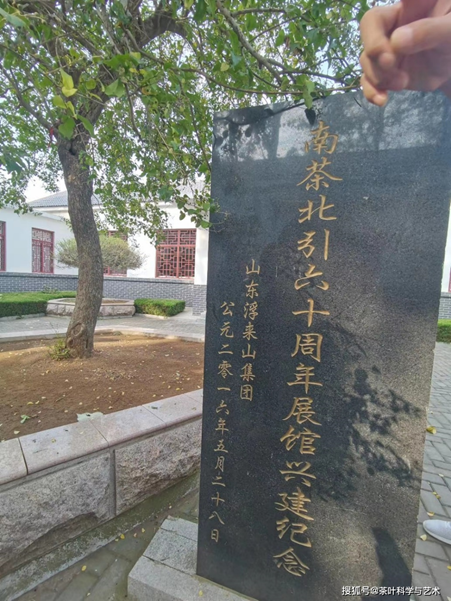 南茶北引六十周年展馆兴建纪念
山东浮来山集团
公元二零一六年五月二十八日
搜狐号@茶叶科学与艺术